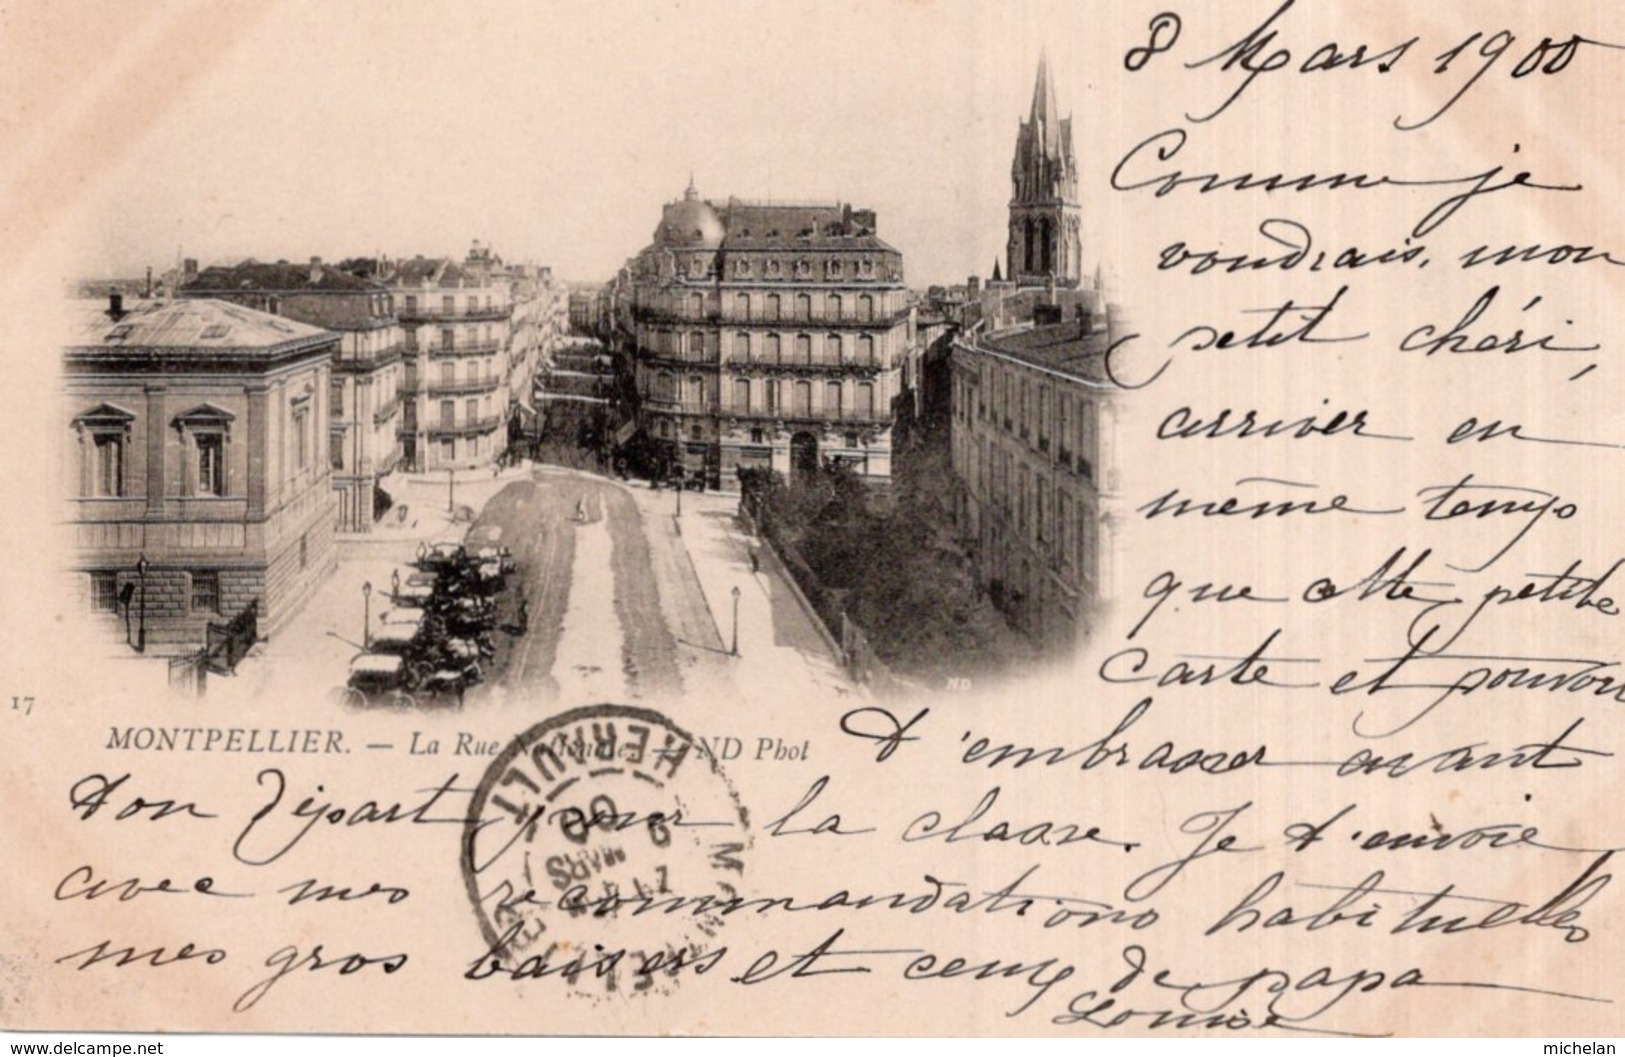 8 Mars 1900
Comme je
voudrais, mon
petit chéri,
arriver en
même temps
que cette petite
carte et pouvoir
17
MONTPELLIER. — La Rue Nationale. — ND Phot
ND
t'embrasser avant
ton départ pour la classe. Je t'envoie
avec mes recommandations habituelles
mes gros baisers et ceux de papa
Louise
MONTPELLIER
HERAULT
9
MARS
00
www.delcampe.net
michelan